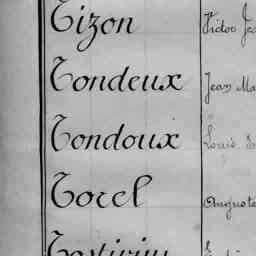 Tizon Victor
Tondeux Jean Ma
Tondoux Louis
Torel Auguste